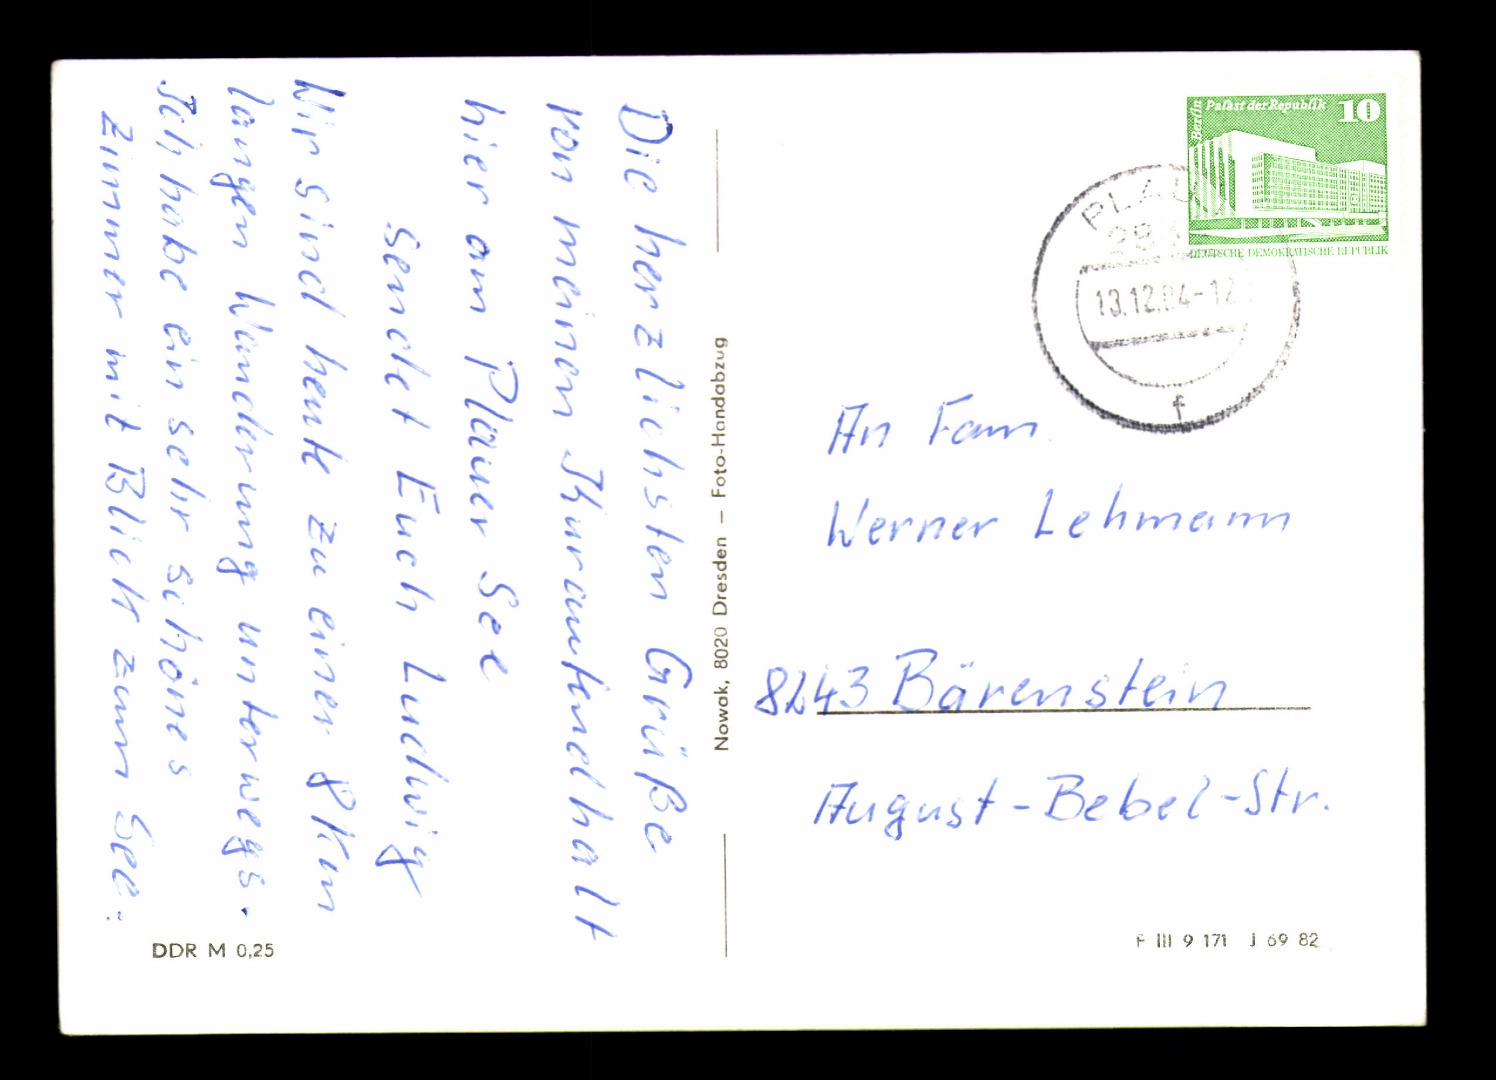 Die herzlichsten Grüße
von meinen Kuraufendhalt
hier am Plauer See
sendet Euch Ludwig
Wir sind heute zu einer 8 Km
langen Wanderung unterwegs.
Ich habe ein sehr schönes
Zimmer mit Blick zum See.
DDR M 0,25
Nowak, 8020 Dresden – Foto-Handabzug
Berlin
Palast der Republik
10
DEUTSCHE DEMOKRATISCHE REPUBLIK
PLAU
13.12.84-12
f
An Fam.
Werner Lehmann
8243 Bärenstein
August-Bebel-Str.
F III 9 171 J 69 82